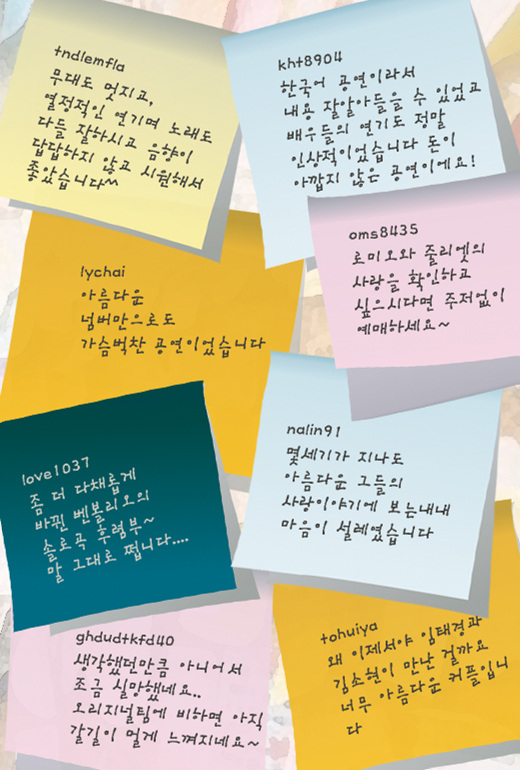 tndlemfla
무대도 멋지고,
열정적인 연기며 노래도
다들 잘하시고 음향이
답답하지 않고 시원해서
좋았습니다~
kht8904
한국어 공연이라서
내용 잘알아들을 수 있었고
배우들의 연기도 정말
인상적이었습니다 돈이
아깝지 않은 공연이에요!
oms8435
로미오와 줄리엣의
사랑을 확인하고
싶으시다면 주저없이
예매하세요~
lychai
아름다운
넘버만으로도
가슴벅찬 공연이었습니다
nalin91
몇세기가 지나도
아름다운 그들의
사랑이야기에 보는내내
마음이 설레였습니다
love1037
좀 더 다채롭게
바뀐 벤볼리오의
솔로곡 후렴부~
말 그대로 쩝니다....
ghdudtkfd40
생각했던만큼 아니어서
조금 실망했네요..
오리지널팀에 비하면 아직
갈길이 멀게 느껴지네요~
tohuiya
왜 이제서야 임태경과
김소현이 만난 걸까요
너무 아름다운 커플입니
다